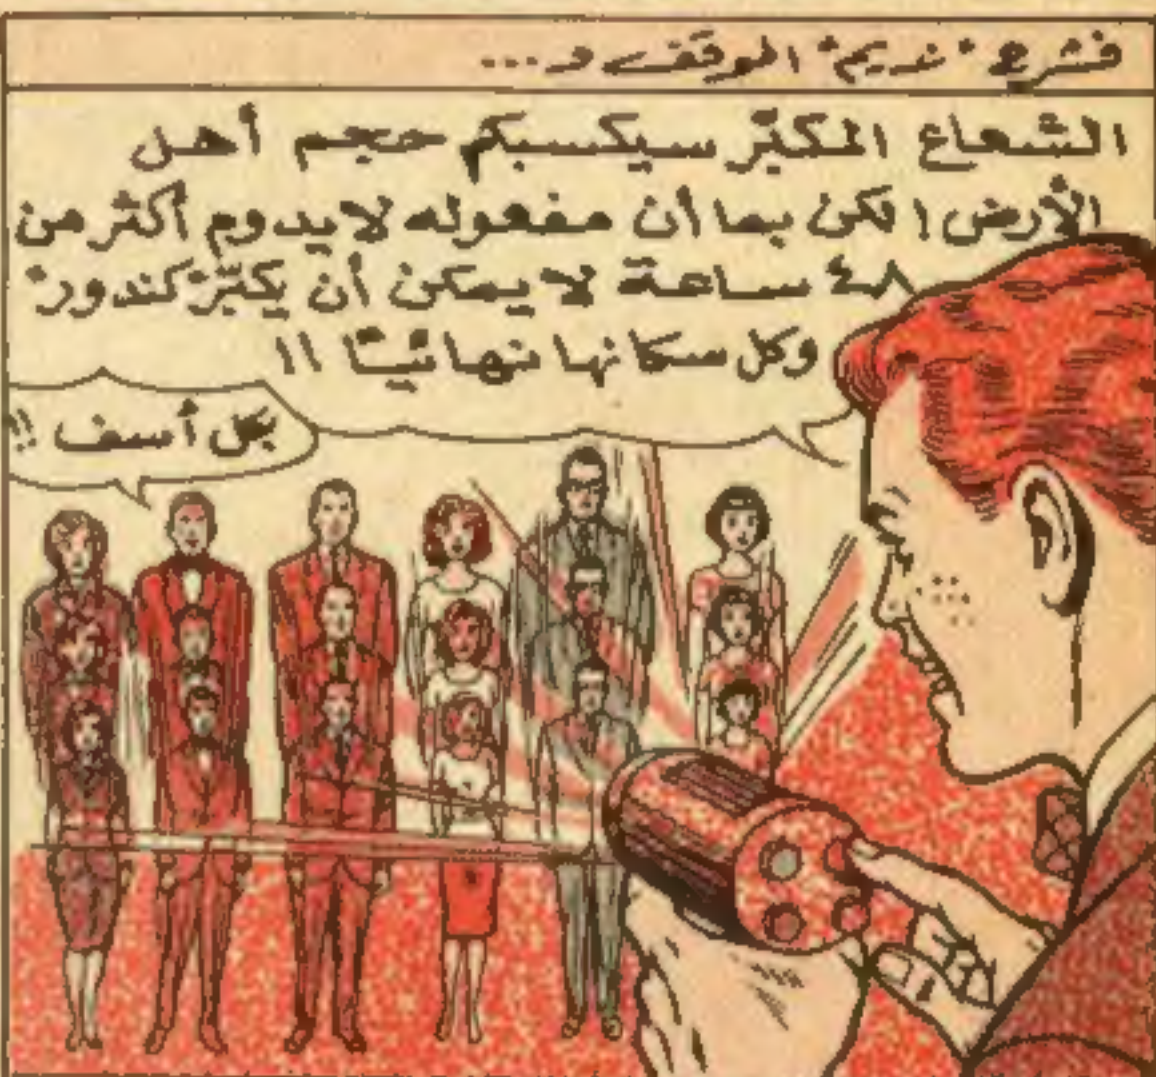 فشرع "نديم" الموقف و...
الشعاع المكبّر سيكسبكم حجم أهل
الأرض! لكن بما أن مفعوله لا يدوم أكثر من
٤٨ ساعة لا يمكن أن يكبّر "كندور"
وكل سكانها نهائيًا !!
بكل أسف !!